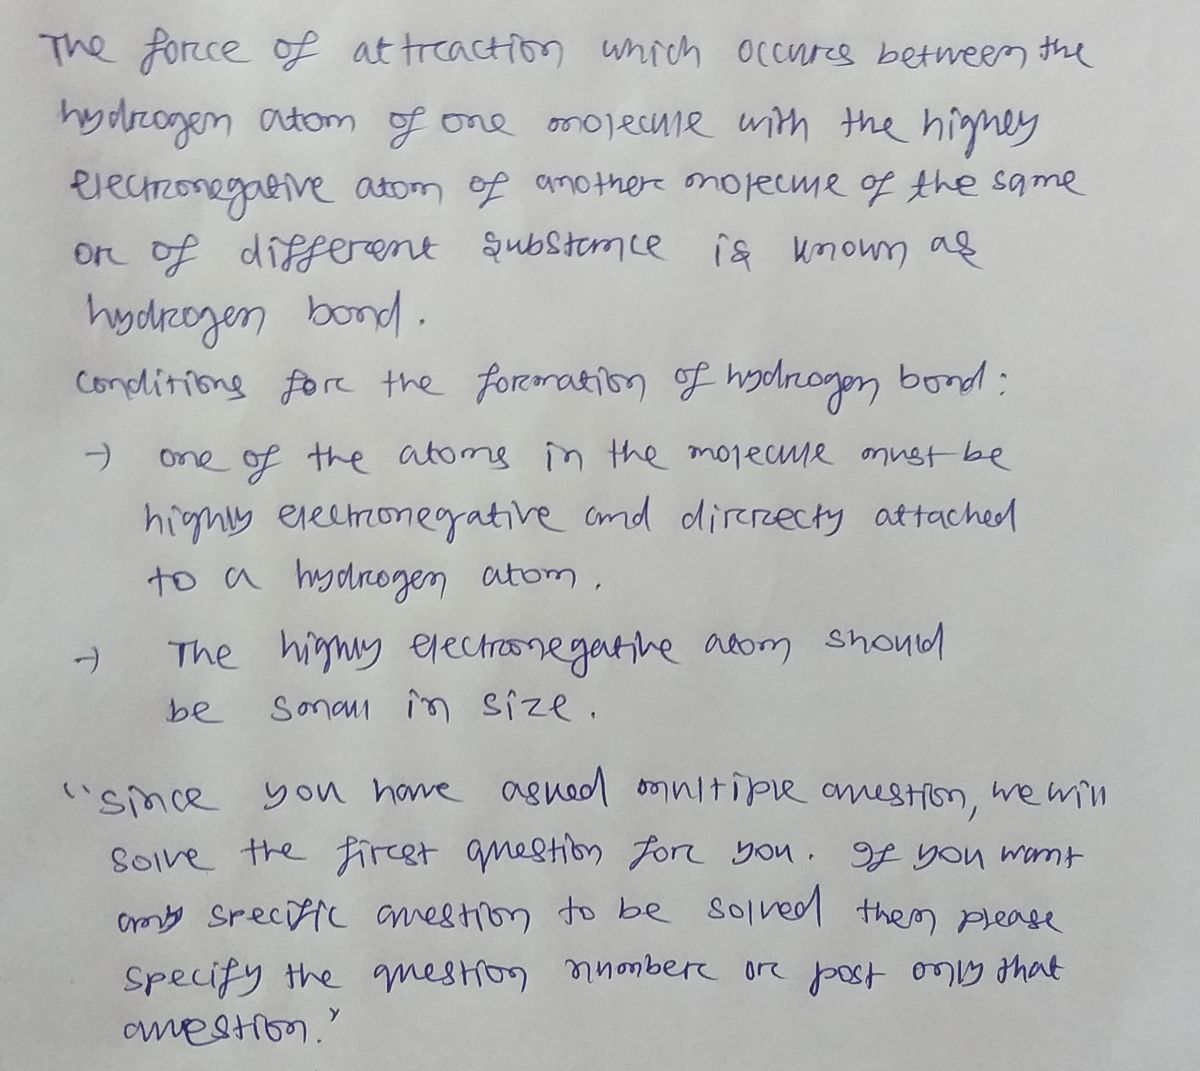 The force of attraction which occurs between the
hydrogen atom of one molecule with the highly
electronegative atom of another molecule of the same
or of different substance is known as
hydrogen bond.
Conditions for the formation of hydrogen bond:
→ one of the atoms in the molecule must be
highly electronegative and dirrecty attached
to a hydrogen atom.
→ The highly electronegative atom should
be small in size.
"Since you have asked multiple question, we will
solve the first question for you. If you want
any specific question to be solved then please
specify the question number or post only that
question."